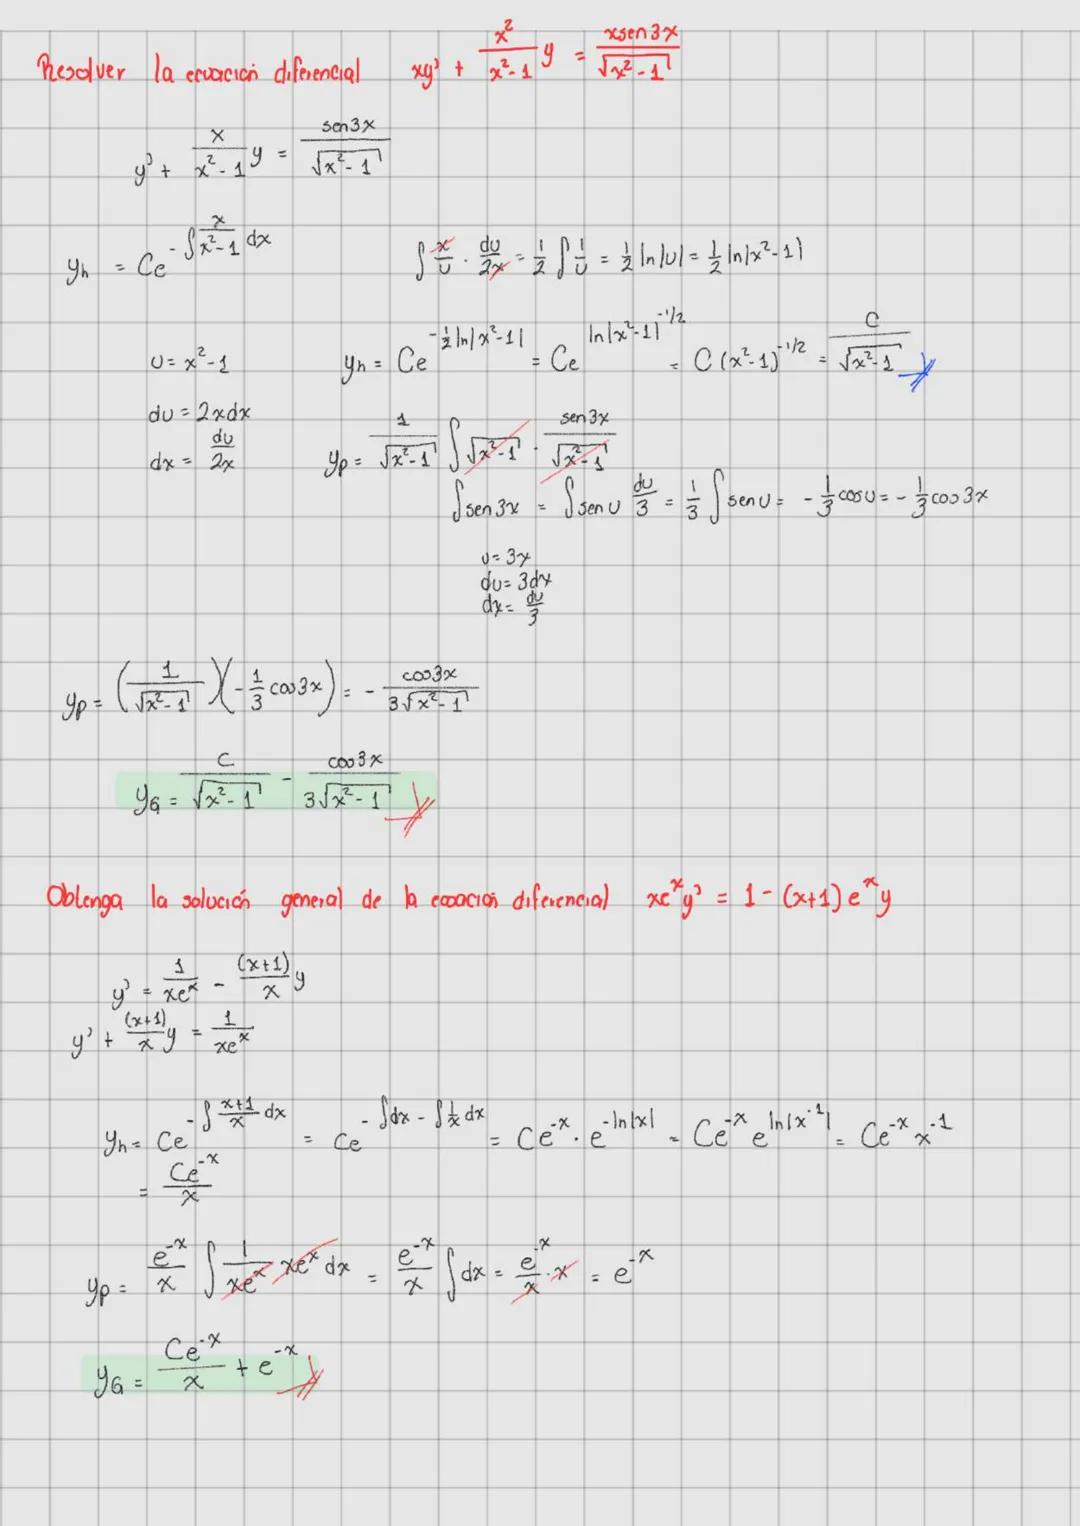 Resolver la ecuación diferencial xy' + x²/(x²-1) y = xsen3x/√(x²-1)
y' + x/(x²-1) y = sen3x/√(x²-1)
yh = Ce^(-∫x/(x²-1) dx)   ∫ x/u · du/2x = 1/2 ∫ 1/u = 1/2 ln|u| = 1/2 ln|x²-1|
u = x²-1   yh = Ce^(-1/2 ln|x²-1|) = Ce^(ln|x²-1|^(-1/2)) = C(x²-1)^(-1/2) = C/√(x²-1)
du = 2xdx
dx = du/2x   yp = 1/√(x²-1) ∫ √(x²-1) · sen3x/√(x²-1)
∫sen3x = ∫sen u du/3 = 1/3 ∫sen u = -1/3 cos u = -1/3 cos3x
u = 3x
du = 3dx
dx = du/3
yp = (1/√(x²-1))(-1/3 cos3x) = - cos3x/3√(x²-1)
yG = C/√(x²-1) - cos3x/3√(x²-1)
Obtenga la solución general de la ecuación diferencial xe^x y' = 1 - (x+1)e^x y
y' = 1/xe^x - (x+1)/x y
y' + (x+1)/x y = 1/xe^x
yh = Ce^(-∫(x+1)/x dx) = Ce^(-∫dx - ∫1/x dx) = Ce^-x · e^(-ln|x|) = Ce^-x e^(ln|x^-1|) = Ce^-x x^-1
= Ce^-x/x
yp = e^-x/x ∫ 1/xe^x xe^x dx = e^-x/x ∫dx = e^-x/x · x = e^-x
yG = Ce^-x/x + e^-x